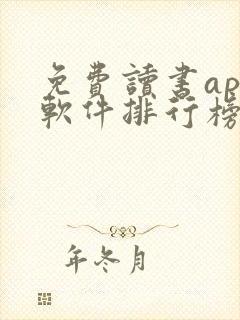 免費讀書ap
軟件排行榜
年冬月